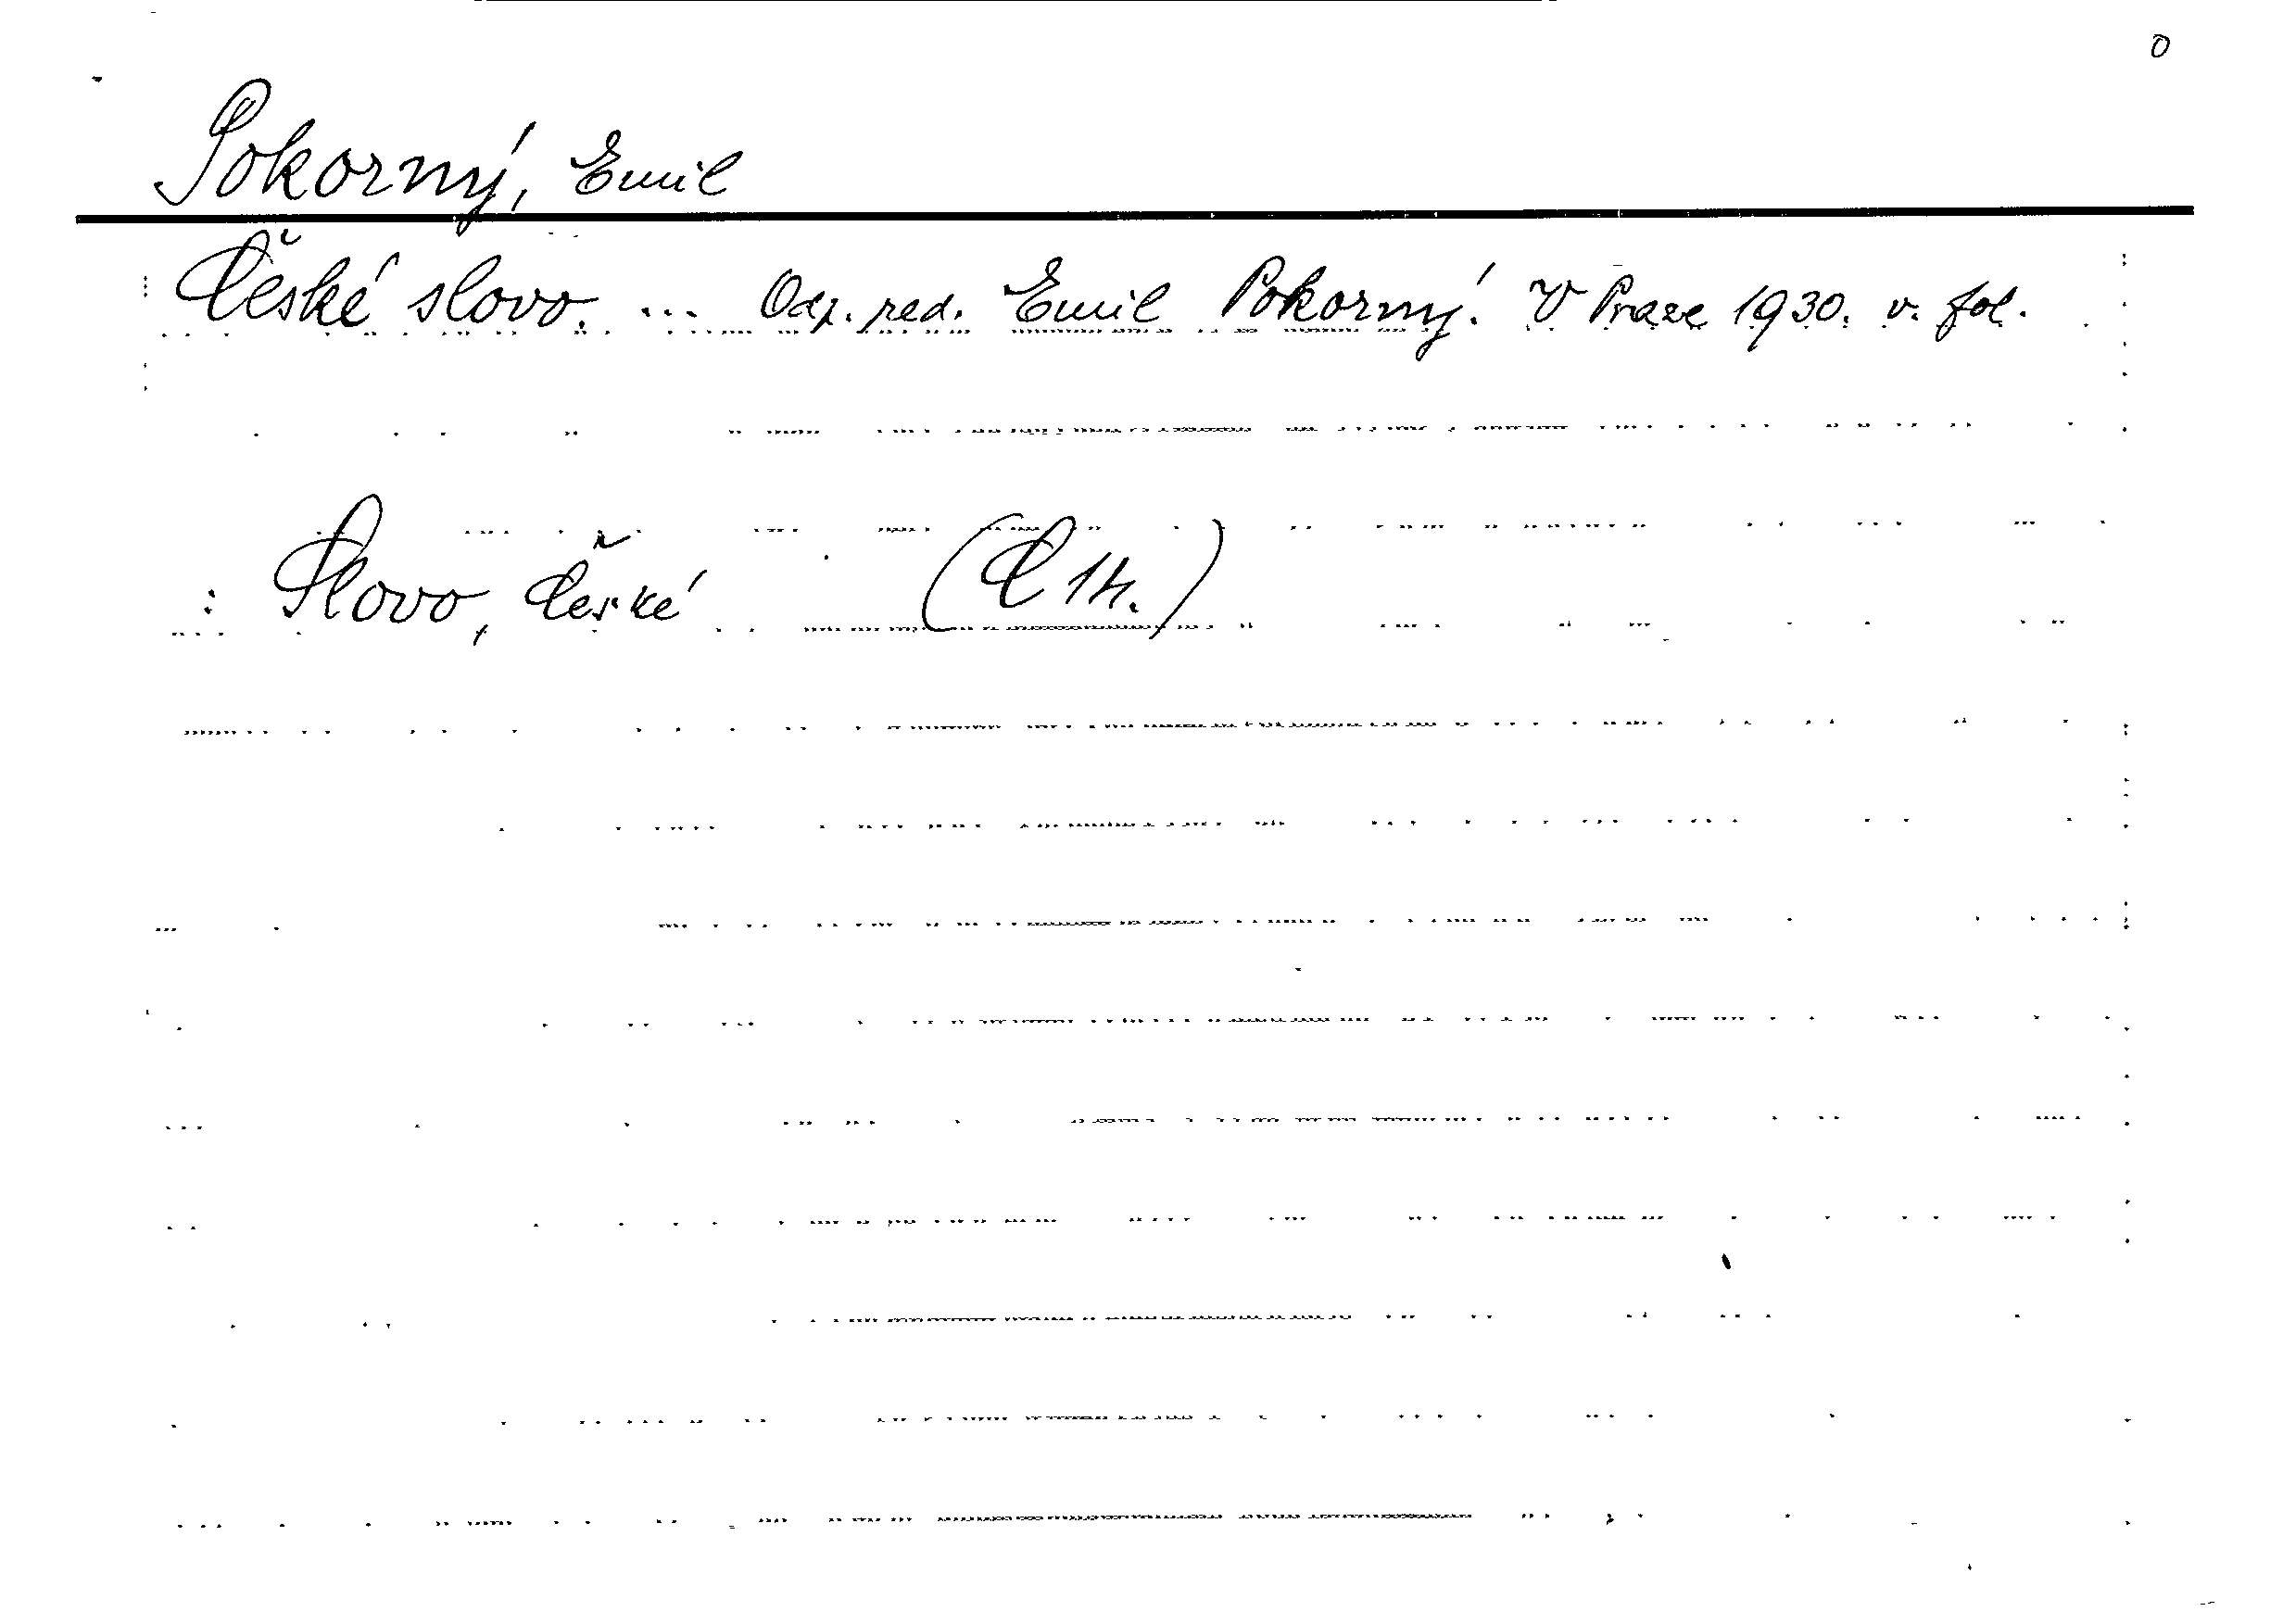 0
Pokorný, Emil
České slovo. ... Odp. red. Emil Pokorný. V Praze 1930. v. fol.
Slovo, České